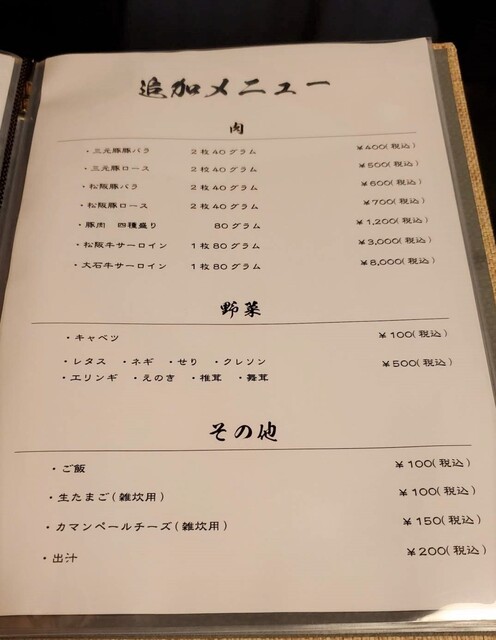 追加メニュー
肉
・三元豚豚バラ 2枚40グラム ￥400(税込)
・三元豚ロース 2枚40グラム ￥500(税込)
・松阪豚バラ 2枚40グラム ￥600(税込)
・松阪豚ロース 2枚40グラム ￥700(税込)
・豚肉 四種盛り 80グラム ￥1,200(税込)
・松阪牛サーロイン 1枚80グラム ￥3,000(税込)
・大石牛サーロイン 1枚80グラム ￥8,000(税込)
野菜
・キャベツ ￥100(税込)
・レタス ・ネギ ・せり ・クレソン ￥500(税込)
・エリンギ ・えのき ・椎茸 ・舞茸
その他
・ご飯 ￥100(税込)
・生たまご(雑炊用) ￥100(税込)
・カマンベールチーズ(雑炊用) ￥150(税込)
・出汁 ￥200(税込)